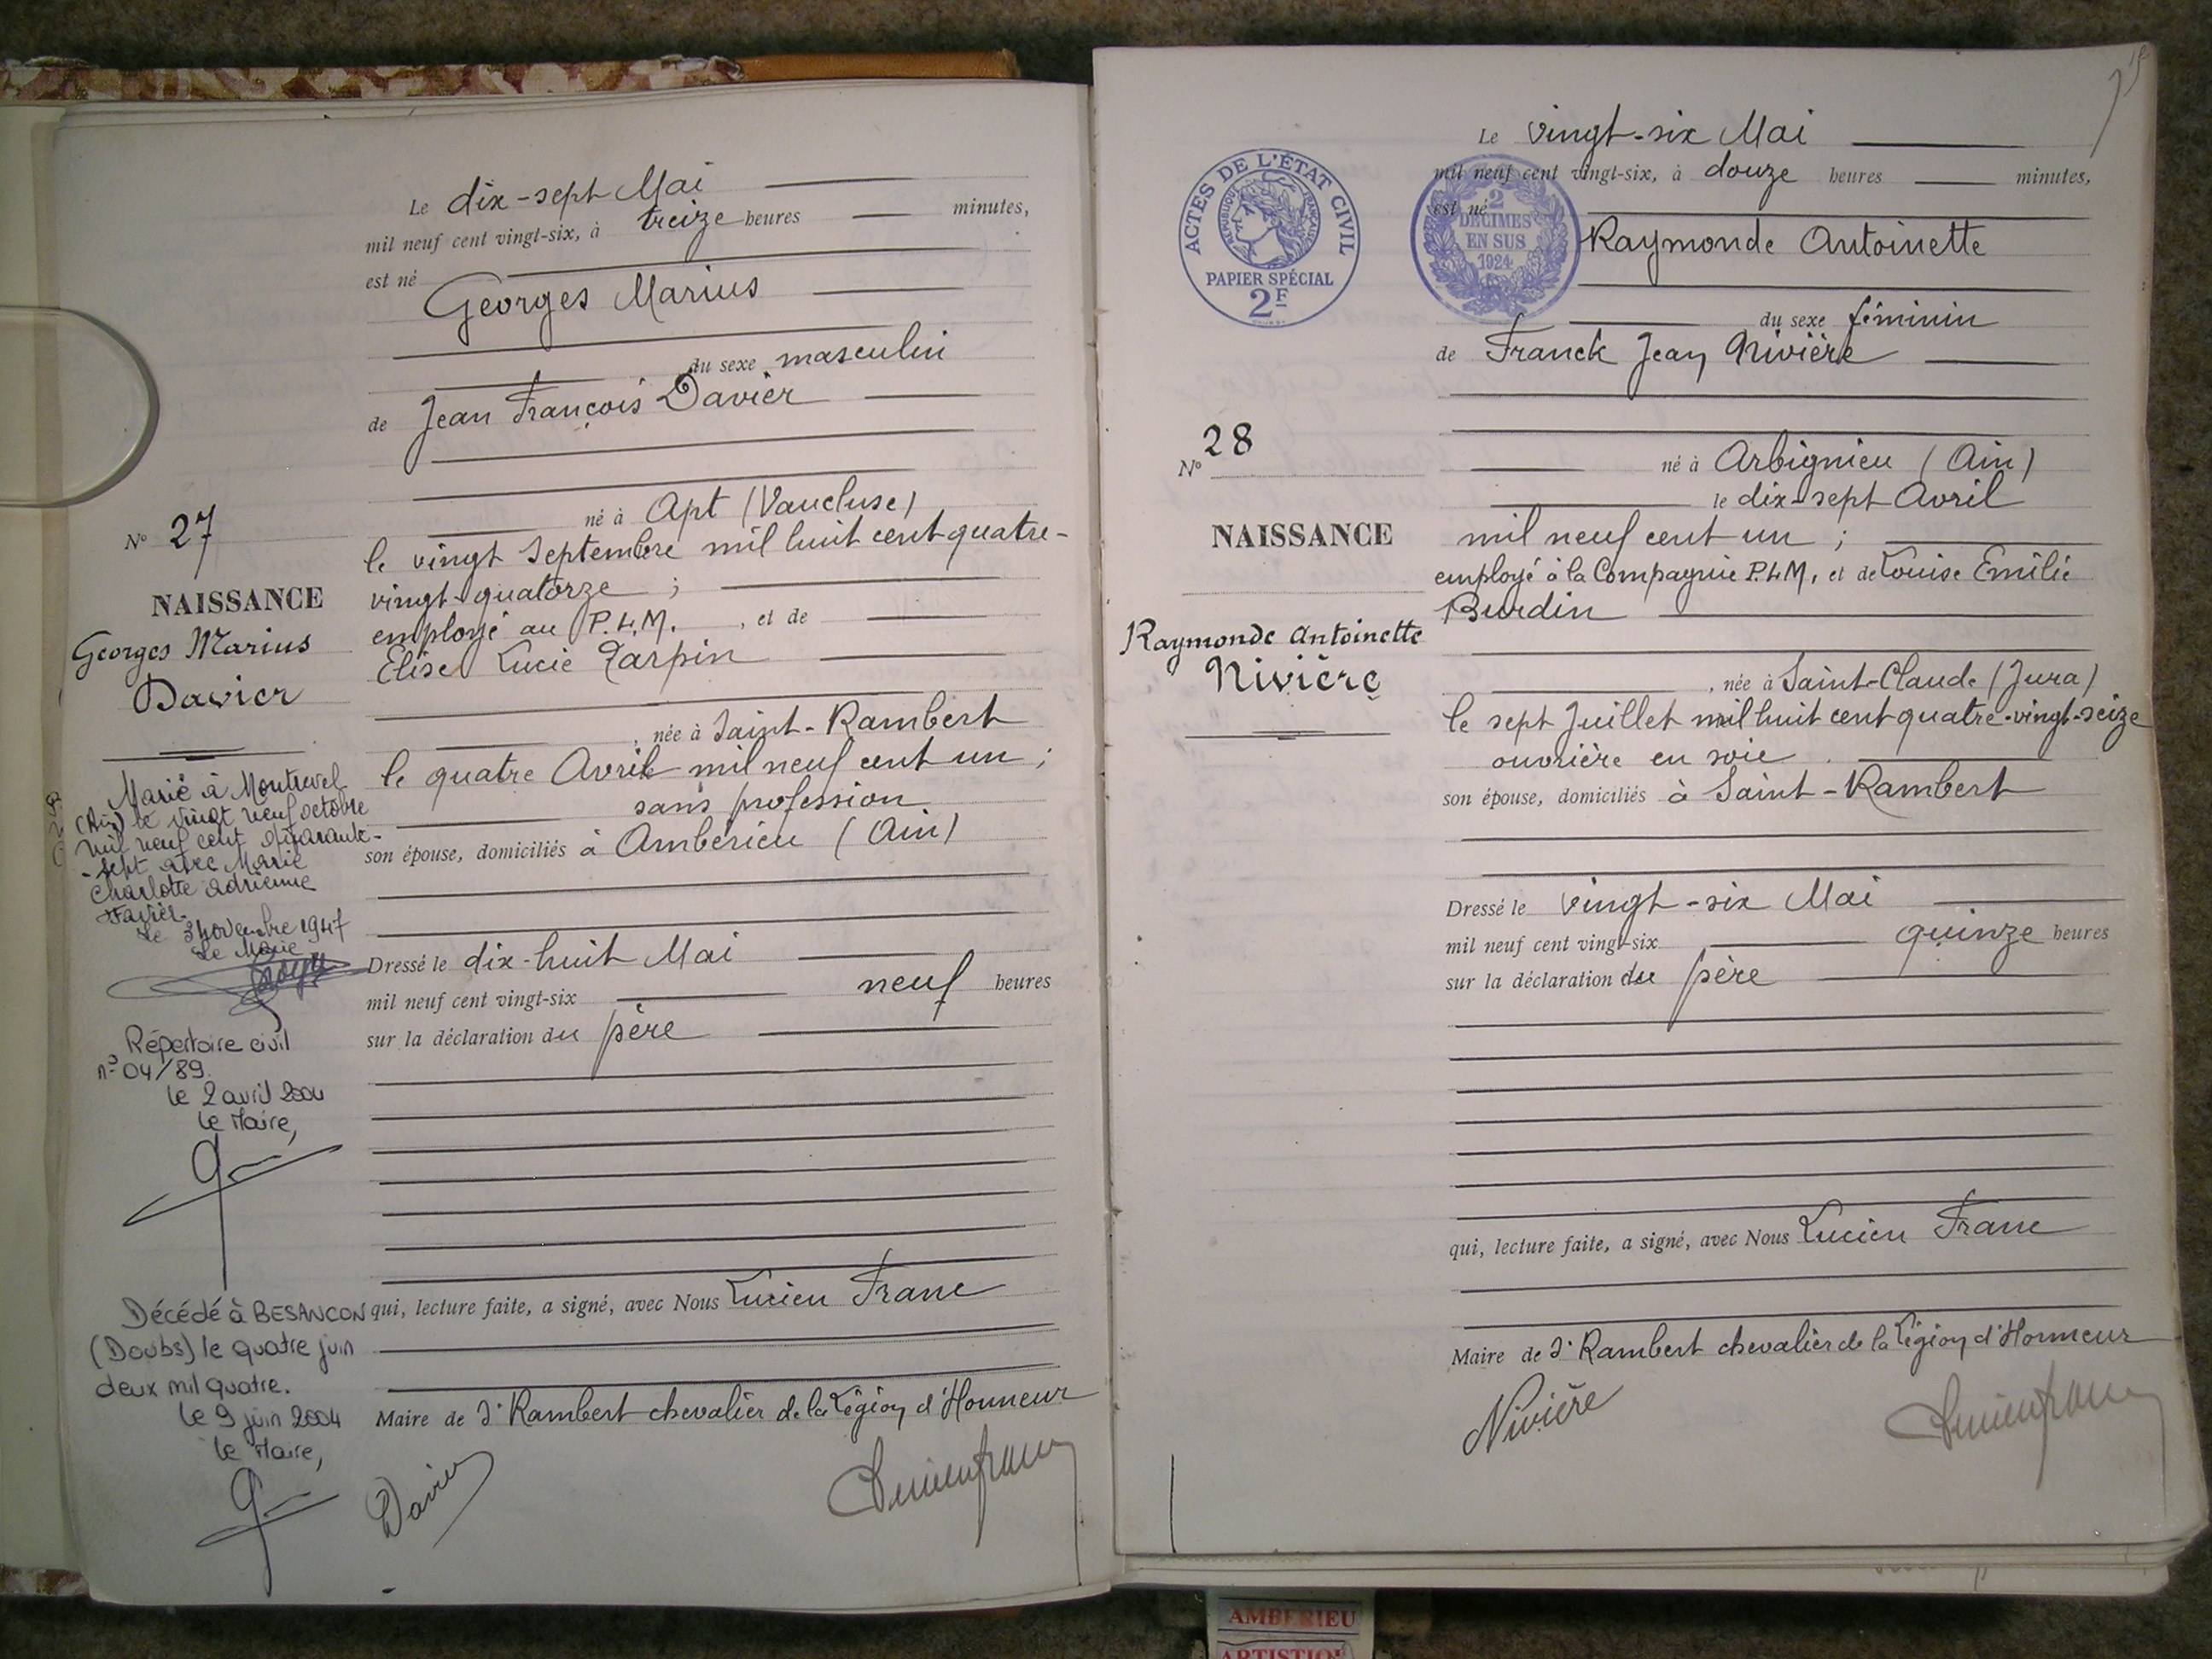 Le dix-sept Mai
mil neuf cent vingt-six, à treize heures minutes,
est né
Georges Marius
du sexe masculin
de Jean François Davier
né à Apt (Vaucluse)
le vingt Septembre mil huit cent quatre-
vingt-quatorze ;
employé au P.L.M. , et de
Elise Lucie Tarpin
, née à Saint-Rambert
le quatre Avril mil neuf cent un ;
sans profession
son épouse, domiciliés à Ambérieu (Ain)
Dressé le dix-huit Mai
mil neuf cent vingt-six neuf heures
sur la déclaration du père
qui, lecture faite, a signé, avec Nous Lucien Franc
Maire de St Rambert chevalier de la Légion d'Honneur
Davier
N° 27
NAISSANCE
Georges Marius
Davier
Marié à Montrevel
(Ain) le vingt neuf octobre
mil neuf cent quarante-
-sept avec Marie
Charlotte Adrienne
Favier.
Le 3 novembre 1947
Le Maire
Répertoire civil
n° 04/89.
le 2 avril 2004
le Maire,
Décédé à BESANCON
(Doubs) le quatre juin
deux mil quatre.
le 9 juin 2004
le Maire,
ACTES DE L'ÉTAT CIVIL
RÉPUBLIQUE FRANÇAISE
PAPIER SPÉCIAL
2F
2
DÉCIMES
EN SUS
1924
Le vingt-six Mai
mil neuf cent vingt-six, à douze heures minutes,
est né
Raymonde Antoinette
du sexe féminin
de Franck Jean Nivière
né à Arbignieu (Ain)
le dix-sept Avril
mil neuf cent un ;
employé à la Compagnie P.L.M. , et de Louise Emilie
Burdin
, née à Saint-Claude (Jura)
le sept Juillet mil huit cent quatre-vingt-seize
ouvrière en soie
son épouse, domiciliés à Saint-Rambert
Dressé le vingt-six Mai
mil neuf cent vingt-six quinze heures
sur la déclaration du père
qui, lecture faite, a signé, avec Nous Lucien Franc
Maire de St Rambert chevalier de la Légion d'Honneur
Nivière
N° 28
NAISSANCE
Raymonde Antoinette
Nivière
AMBERIEU